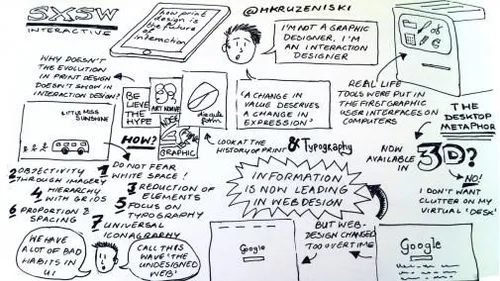 SXSW
INTERACTIVE
how print
design is
the future
of
interaction
@MKRUZENISKI
I'M NOT A GRAPHIC
DEDIGNER, I'M
AN INTERACTION
DESIGNER
WHY DOESN'T
THE EVOLUTION
IN PRINT DESIGN
DOESN'T SHOW IN
INTERACTION DESIGN?
BE
LIEVE
THE
HYPE
ART NOUVE
GRAPHIC
'A CHANGE IN
VALUE DESERVES
A CHANGE IN
EXPRESSION'
REAL LIFE
TOOLS WERE PUT IN
THE FIRST GRAPHIC
USER INTERFACES ON
COMPUTERS
THE
DESKTOP
METAPHOR
NOW
AVAILABLE
IN
3D?
NO!
I DON'T WANT
CLUTTER ON MY
VIRTUAL 'DESK'
LITTLE MISS
SUNSHINE
HOW?
LOOK AT THE
HISTORY OF PRINT & Typography
1 DO NOT FEAR
WHITE SPACE!
2 OBJECTIVITY
THROUGH IMAGERY
3 REDUCTION OF
ELEMENTS
4 HIERARCHY
WITH GRIDS
5 FOCUS ON
TYPOGRAPHY
6 PROPORTION &
SPACING
7 UNIVERSAL
ICONAGRAPHY
INFORMATION
IS NOW LEADING
IN WEBDESIGN
WE HAVE
A LOT OF BAD
HABITS IN
UI
CALL THIS
WAVE 'THE
UNDESIGNED
WEB'
Google
BUT WEB-
DESIGN CHANGED
TOO OVER TIME
Google